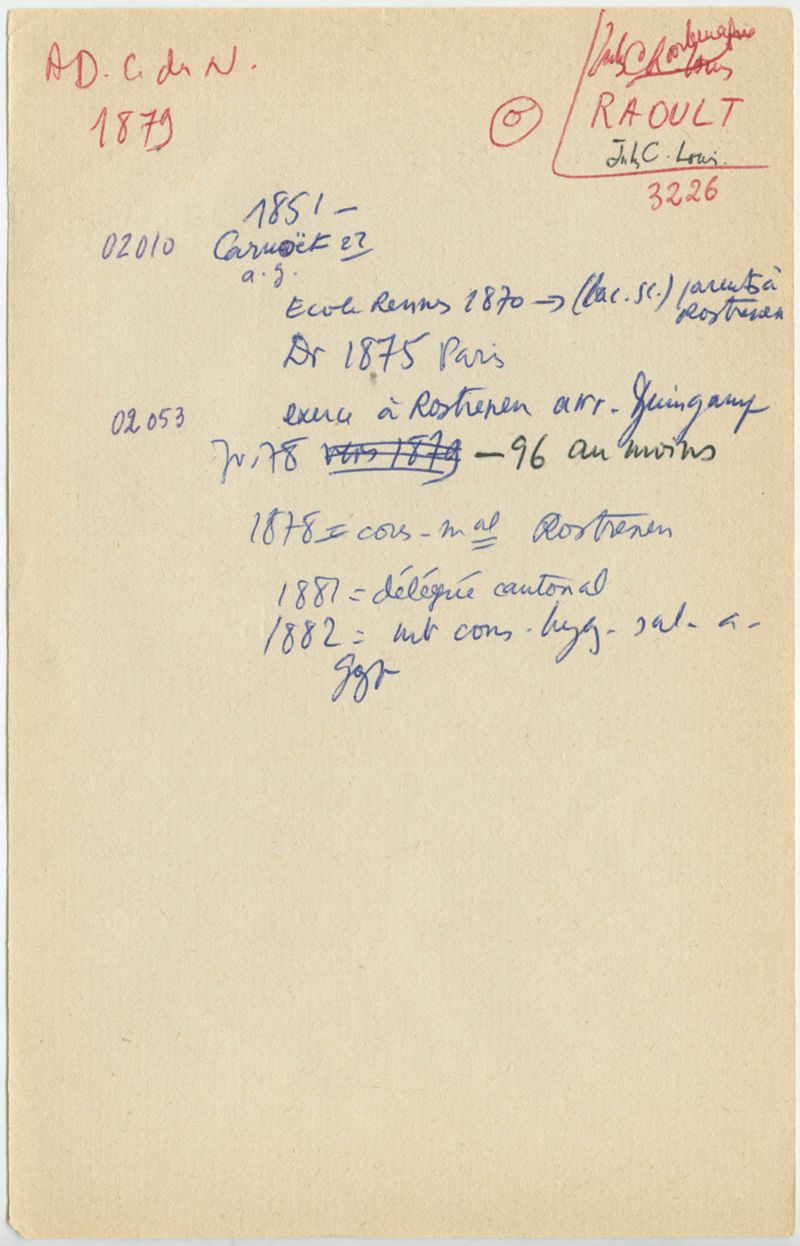 A D. C. du N.
1879
RAOULT
Jules C. Louis.
3226
1851 –
02010 Carnoët 22
a. g.
Ecole Rennes 1870 → (bac. sc.) parents à Rostrenen
Dr 1875 Paris
02053 exerce à Rostrenen arr. Guingamp
78 vers 1879 – 96 au moins
1878 = cons. mal Rostrenen
1881 = délégué cantonal
1882 = mb cons. hyg. sal. a.
Ggp